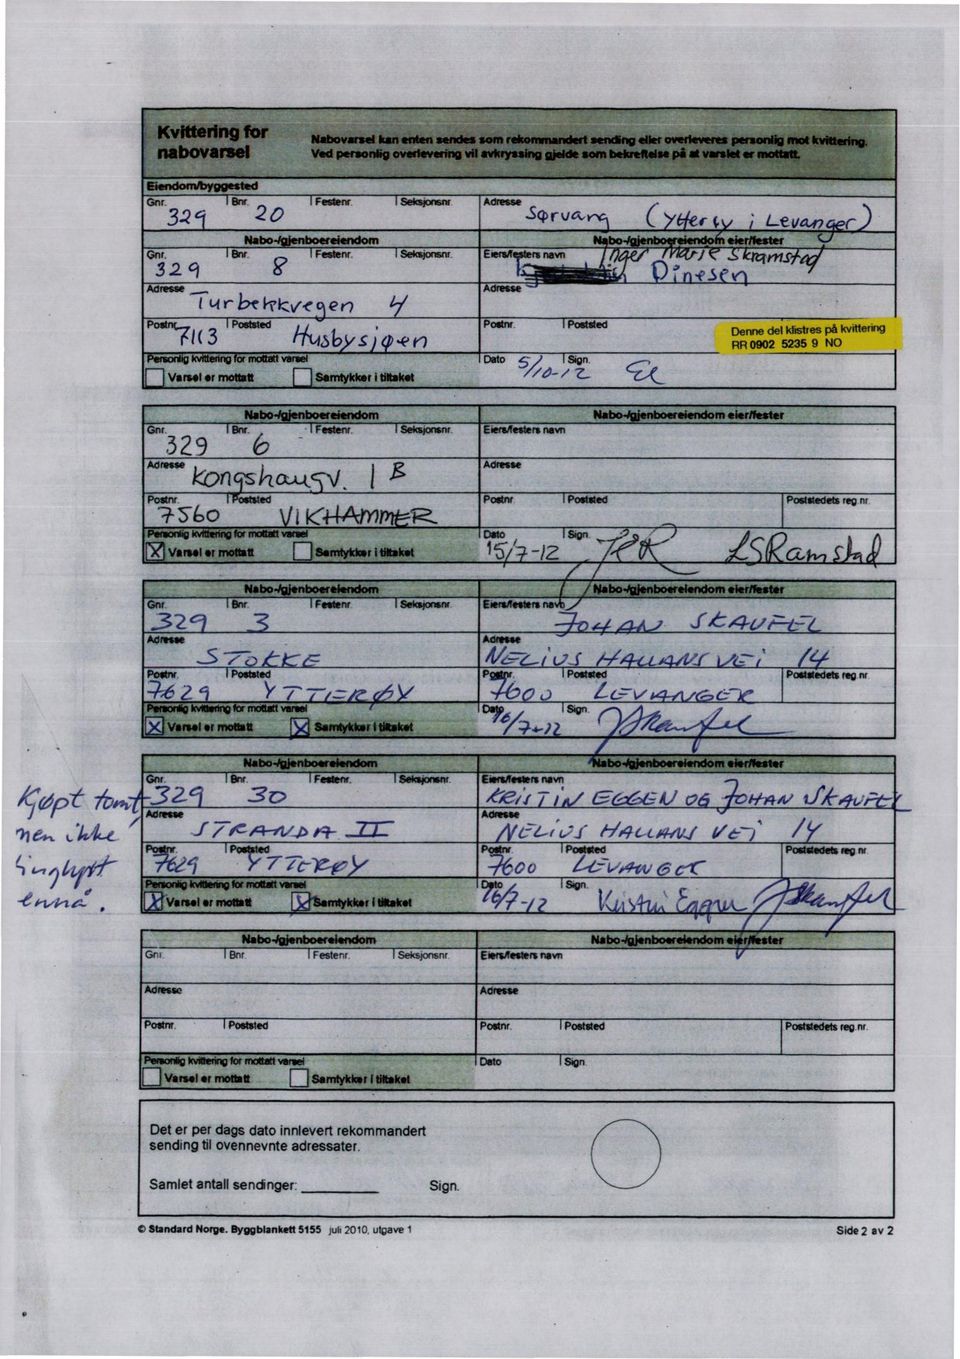 Kvittering for
nabovarsel
Nabovarsel kan enten sendes som rekommandert sending eller overleveres personlig mot kvittering.
Ved personlig overlevering vil avkryssing gjelde som bekreftelse på at varslet er mottatt.
Eiendom/byggested
Gnr. Bnr. Festenr. Seksjonsnr. Adresse
329 20 Sørvang (Ytterøy i Levanger)
Nabo-/gjenboereiendom Nabo-/gjenboereiendom eier/fester
Gnr. Bnr. Festenr. Seksjonsnr. Eiers/festers navn Inger Marie Skramstad
329 8 Dinesen
Adresse Adresse
Turbekkvegen 4
Postnr. Poststed Postnr. Poststed
7113 Husbysjøen
Denne del klistres på kvittering
RR 0902 5235 9 NO
Personlig kvittering for mottatt varsel Dato Sign.
Varsel er mottatt Samtykker i tiltaket 5/10-12
Nabo-/gjenboereiendom Nabo-/gjenboereiendom eier/fester
Gnr. Bnr. Festenr. Seksjonsnr. Eiers/festers navn
329 6
Adresse Adresse
Kongshaugv. 1 B
Postnr. Poststed Postnr. Poststed Poststedets reg.nr.
7560 VIKHAMMER
Personlig kvittering for mottatt varsel Dato Sign.
X Varsel er mottatt Samtykker i tiltaket 15/7-12 LSRamstad
Nabo-/gjenboereiendom Nabo-/gjenboereiendom eier/fester
Gnr. Bnr. Festenr. Seksjonsnr. Eiers/festers navn
329 3 JOHAN SKAUFEL
Adresse Adresse
STOKKE NELIUS HALLANS VEI 14
Postnr. Poststed Postnr. Poststed Poststedets reg.nr.
7629 YTTERØY 7600 LEVANGER
Personlig kvittering for mottatt varsel Dato Sign.
X Varsel er mottatt X Samtykker i tiltaket 16/7-12 JSkaufel
Nabo-/gjenboereiendom Nabo-/gjenboereiendom eier/fester
Gnr. Bnr. Festenr. Seksjonsnr. Eiers/festers navn
Kjøpt tomt, 329 30 KRISTIN EGGEN OG JOHAN SKAUFEL
Adresse Adresse
men ikke STRANDA II NELIUS HALLANS VEI 14
Postnr. Poststed Postnr. Poststed Poststedets reg.nr.
tinglyst 7629 YTTERØY 7600 LEVANGER
Personlig kvittering for mottatt varsel Dato Sign.
ennå. X Varsel er mottatt X Samtykker i tiltaket 16/7-12 Kristin Eggen JSkaufel
Nabo-/gjenboereiendom Nabo-/gjenboereiendom eier/fester
Gnr. Bnr. Festenr. Seksjonsnr. Eiers/festers navn
Adresse Adresse
Postnr. Poststed Postnr. Poststed Poststedets reg.nr.
Personlig kvittering for mottatt varsel Dato Sign.
Varsel er mottatt Samtykker i tiltaket
Det er per dags dato innlevert rekommandert
sending til ovennevnte adressater.
Samlet antall sendinger: Sign.
© Standard Norge. Byggblankett 5155 juli 2010, utgave 1 Side 2 av 2